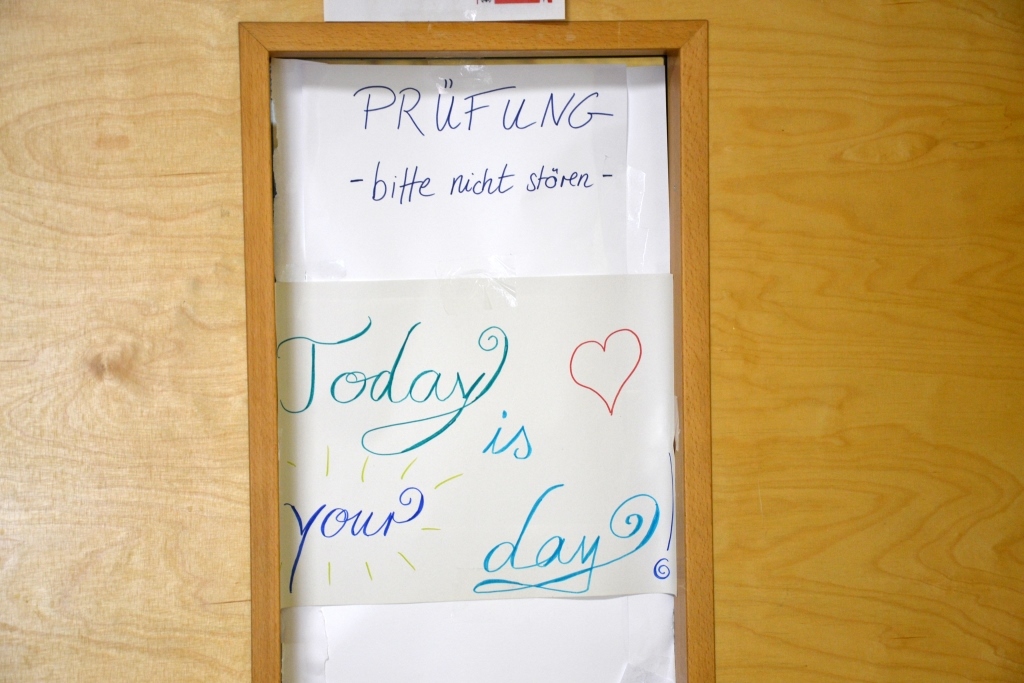 PRÜFUNG
- bitte nicht stören -
Today
is
your
day!